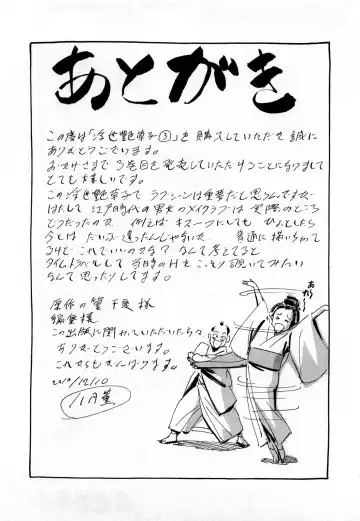 あとがき
この度は「浮世艶草子③」を購入していただき誠に
ありがとうございます。
おかげさまで3巻目を発表していただけることになりまして
とても嬉しいです。
この浮世艶草子で ラブシーンは重要だと思うんですが
はたして 江戸時代の男女のメイクラブは 実際のところ
どうだったのか 例えば キス一つにしても ひょっとしたら
今とは だいぶ違ったんじゃないか 普通に描いちゃって
るけど これでいいのかな? なんて考えてると
タイムトラベルして 当時のHを こっそり覗いてみたい
なんて思ったりしてます。
原作の 千 様
編集様
この出版に関わっていただいた方々
ありがとうございます。
これからもがんばります。
2010/12/10
八月薫
あれ〜